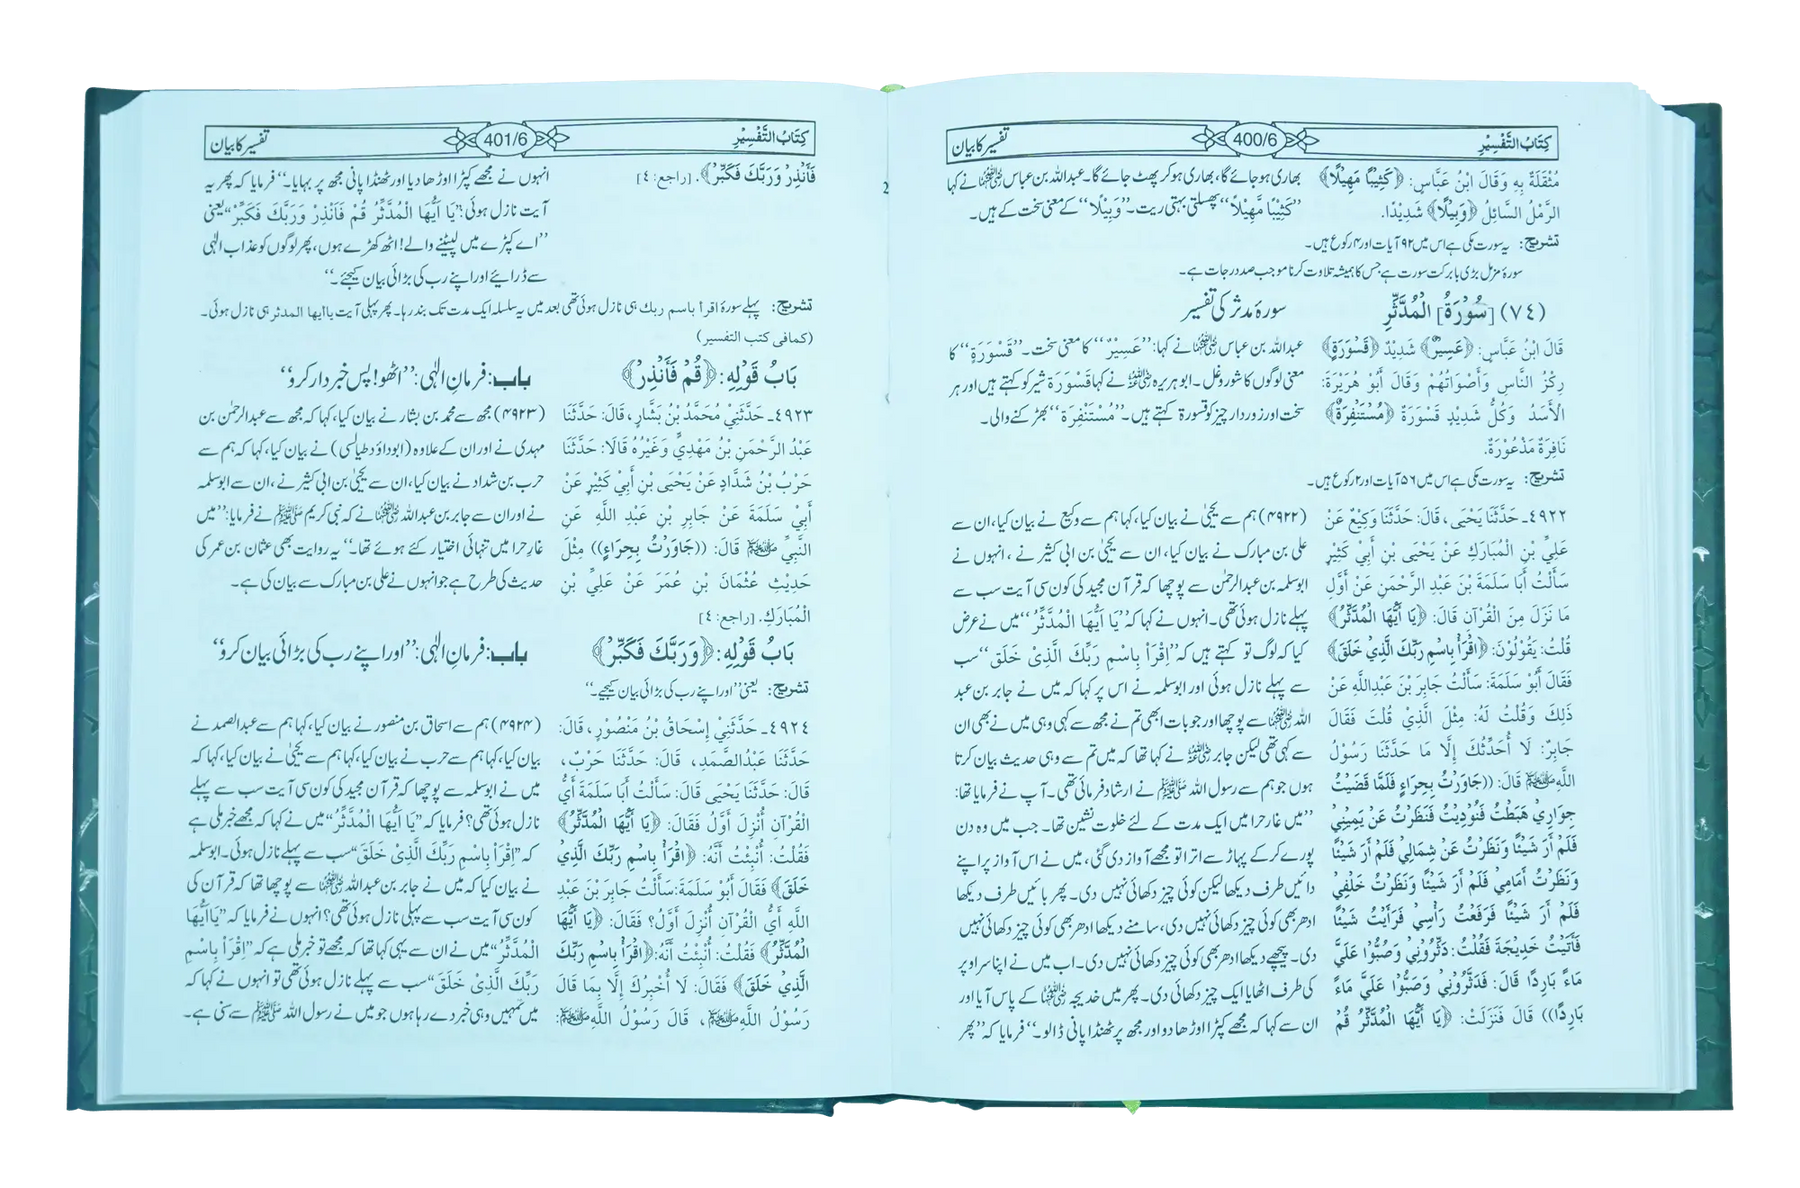 كِتَابُ التَّفْسِيْرِ
400/6
تفسیر کا بیان
مُثْقَلَةٌ بِهِ وَقَالَ ابْنُ عَبَّاسٍ: ﴿كَثِيْبًا مَهِيْلًا﴾
الرَّمْلُ السَّائِلُ ﴿وَبِيْلًا﴾ شَدِيْدًا.
بھاری ہو جائے گا، بھاری ہو کر پھٹ جائے گا۔ عبداللہ بن عباس رضی اللہ عنہما نے کہا
’’كَثِيْبًا مَّهِيْلًا‘‘ پھسلتی بہتی ریت۔ ’’وَبِيْلًا‘‘ کے معنی سخت کے ہیں۔
تشریح: یہ سورت مکی ہے اس میں ۹۲ آیات اور ۴ رکوع ہیں۔
سورۂ مزمل بڑی بابرکت سورت ہے جس کا ہمیشہ تلاوت کرنا موجب صد درجات ہے۔
(٧٤) [سُوْرَةُ] الْمُدَّثِّرِ
سورۂ مدثر کی تفسیر
قَالَ ابْنُ عَبَّاسٍ: ﴿عَسِيْرٌ﴾ شَدِيْدٌ ﴿قَسْوَرَةٍ﴾
رِكْزُ النَّاسِ وَأَصْوَاتُهُمْ وَقَالَ أَبُوْ هُرَيْرَةَ:
الْأَسَدُ وَكُلُّ شَدِيْدٍ قَسْوَرَةٌ ﴿مُسْتَنْفِرَةٌ﴾
نَافِرَةٌ مَذْعُوْرَةٌ.
عبداللہ بن عباس رضی اللہ عنہما نے کہا: ’’عَسِيْرٌ‘‘ کا معنی سخت۔ ’’قَسْوَرَةٍ‘‘ کا
معنی لوگوں کا شور و غل۔ ابو ہریرہ رضی اللہ عنہ نے کہا قَسْوَرَة شیر کو کہتے ہیں اور ہر
سخت اور زور دار چیز کو قسورة کہتے ہیں۔ ’’مُسْتَنْفِرَة‘‘ بھڑکنے والی۔
تشریح: یہ سورت مکی ہے اس میں ۵۶ آیات اور ۲ رکوع ہیں۔
٤٩٢٢ـ حَدَّثَنَا يَحْيَى، قَالَ: حَدَّثَنَا وَكِيْعٌ عَنْ
عَلِيِّ بْنِ الْمُبَارَكِ عَنْ يَحْيَى بْنِ أَبِي كَثِيْرٍ
سَأَلْتُ أَبَا سَلَمَةَ بْنَ عَبْدِ الرَّحْمَنِ عَنْ أَوَّلِ
مَا نَزَلَ مِنَ الْقُرْآنِ قَالَ: ﴿يَا أَيُّهَا الْمُدَّثِّرُ﴾
قُلْتُ: يَقُوْلُوْنَ: ﴿اقْرَأْ بِاسْمِ رَبِّكَ الَّذِيْ خَلَقَ﴾
فَقَالَ أَبُوْ سَلَمَةَ: سَأَلْتُ جَابِرَ بْنَ عَبْدِاللَّهِ عَنْ
ذَلِكَ وَقُلْتُ لَهُ: مِثْلَ الَّذِيْ قُلْتَ فَقَالَ
جَابِرٌ: لَا أُحَدِّثُكَ إِلَّا مَا حَدَّثَنَا رَسُوْلُ
اللَّهِ ﷺ قَالَ: ((جَاوَرْتُ بِحِرَاءٍ فَلَمَّا قَضَيْتُ
جِوَارِيْ هَبَطْتُ فَنُوْدِيْتُ فَنَظَرْتُ عَنْ يَمِيْنِيْ
فَلَمْ أَرَ شَيْئًا وَنَظَرْتُ عَنْ شِمَالِيْ فَلَمْ أَرَ شَيْئًا
وَنَظَرْتُ أَمَامِيْ فَلَمْ أَرَ شَيْئًا وَنَظَرْتُ خَلْفِيْ
فَلَمْ أَرَ شَيْئًا فَرَفَعْتُ رَأْسِيْ فَرَأَيْتُ شَيْئًا
فَأَتَيْتُ خَدِيْجَةَ فَقُلْتُ: دَثِّرُوْنِيْ وَصُبُّوْا عَلَيَّ
مَاءً بَارِدًا قَالَ: فَدَثَّرُوْنِيْ وَصَبُّوْا عَلَيَّ مَاءً
بَارِدًا)) قَالَ فَنَزَلَتْ: ﴿يَا أَيُّهَا الْمُدَّثِّرُ قُمْ
(۴۹۲۲) ہم سے یحییٰ نے بیان کیا، کہا ہم سے وکیع نے بیان کیا، ان سے
علی بن مبارک نے بیان کیا، ان سے یحییٰ بن ابی کثیر نے، انہوں نے
ابوسلمہ بن عبدالرحمٰن سے پوچھا کہ قرآن مجید کی کون سی آیت سب سے
پہلے نازل ہوئی تھی۔ انہوں نے کہا کہ ’’يَا أَيُّهَا الْمُدَّثِّرُ‘‘ میں نے عرض
کیا کہ لوگ تو کہتے ہیں کہ ’’اِقْرَاْ بِاسْمِ رَبِّكَ الَّذِيْ خَلَقَ‘‘ سب
سے پہلے نازل ہوئی اور ابوسلمہ نے اس پر کہا کہ میں نے جابر بن عبد
اللہ رضی اللہ عنہما سے پوچھا اور جو بات ابھی تم نے مجھ سے کہی وہی میں نے بھی ان
سے کہی تھی لیکن جابر رضی اللہ عنہ نے کہا تھا کہ میں تم سے وہی حدیث بیان کرتا
ہوں جو ہم سے رسول اللہ ﷺ نے ارشاد فرمائی تھی۔ آپ نے فرمایا تھا:
’’میں غار حرا میں ایک مدت کے لئے خلوت نشین تھا۔ جب میں وہ دن
پورے کر کے پہاڑ سے اترا تو مجھے آواز دی گئی، میں نے اس آواز پر اپنے
دائیں طرف دیکھا لیکن کوئی چیز دکھائی نہیں دی۔ پھر بائیں طرف دیکھا
ادھر بھی کوئی چیز دکھائی نہیں دی، سامنے دیکھا ادھر بھی کوئی چیز دکھائی نہیں
دی۔ پیچھے دیکھا ادھر بھی کوئی چیز دکھائی نہیں دی۔ اب میں نے اپنا سر اوپر
کی طرف اٹھایا ایک چیز دکھائی دی۔ پھر میں خدیجہ رضی اللہ عنہا کے پاس آیا اور
ان سے کہا کہ مجھے کپڑا اوڑھا دو اور مجھ پر ٹھنڈا پانی ڈالو۔‘‘ فرمایا کہ ’’پھر
كِتَابُ التَّفْسِيْرِ
401/6
تفسیر کا بیان
فَأَنْذِرْ وَرَبَّكَ فَكَبِّرْ﴾. [راجع: ٤]
انہوں نے مجھے کپڑا اوڑھا دیا اور ٹھنڈا پانی مجھ پر بہایا۔‘‘ فرمایا کہ پھر یہ
آیت نازل ہوئی: ’’يَا اَيُّهَا الْمُدَّثِّرُ قُمْ فَاَنْذِرْ وَرَبَّكَ فَكَبِّرْ‘‘ یعنی
’’اے کپڑے میں لپٹنے والے! اٹھ کھڑے ہوں، پھر لوگوں کو عذاب الٰہی
سے ڈرائیے اور اپنے رب کی بڑائی بیان کیجئے۔‘‘
تشریح: پہلے سورۂ اقرأ باسم ربك ہی نازل ہوئی تھی بعد میں یہ سلسلہ ایک مدت تک بند رہا۔ پھر پہلی آیت یاایها المدثر ہی نازل ہوئی۔
(كمافی كتب التفسير)
بَابُ قَوْلِهِ: ﴿قُمْ فَأَنْذِرْ﴾
باب: فرمانِ الٰہی: ’’اٹھو! پس خبردار کرو‘‘
٤٩٢٣ـ حَدَّثَنِيْ مُحَمَّدُ بْنُ بَشَّارٍ، قَالَ: حَدَّثَنَا
عَبْدُ الرَّحْمَنِ بْنُ مَهْدِيٍّ وَغَيْرُهُ قَالَا: حَدَّثَنَا
حَرْبُ بْنُ شَدَّادٍ عَنْ يَحْيَى بْنِ أَبِي كَثِيْرٍ عَنْ
أَبِيْ سَلَمَةَ عَنْ جَابِرِ بْنِ عَبْدِ اللَّهِ عَنِ
النَّبِيِّ ﷺ قَالَ: ((جَاوَرْتُ بِحِرَاءٍ)) مِثْلَ
حَدِيْثِ عُثْمَانَ بْنِ عُمَرَ عَنْ عَلِيِّ بْنِ
الْمُبَارَكِ. [راجع: ٤]
(۴۹۲۳) مجھ سے محمد بن بشار نے بیان کیا، کہا کہ مجھ سے عبدالرحمٰن بن
مہدی نے اور ان کے علاوہ (ابوداؤد طیالسی) نے بیان کیا، کہا کہ ہم سے
حرب بن شداد نے بیان کیا، ان سے یحییٰ بن ابی کثیر نے، ان سے ابوسلمہ
نے اور ان سے جابر بن عبداللہ رضی اللہ عنہما نے کہ نبی کریم ﷺ نے فرمایا: ’’میں
غار حرا میں تنہائی اختیار کئے ہوئے تھا۔‘‘ یہ روایت بھی عثمان بن عمر کی
حدیث کی طرح ہے جو انہوں نے علی بن مبارک سے بیان کی ہے۔
بَابُ قَوْلِهِ: ﴿وَرَبَّكَ فَكَبِّرْ﴾
باب: فرمانِ الٰہی: ’’اور اپنے رب کی بڑائی بیان کرو‘‘
تشریح: یعنی ’’اور اپنے رب کی بڑائی بیان کیجیے۔‘‘
٤٩٢٤ـ حَدَّثَنِيْ إِسْحَاقُ بْنُ مَنْصُوْرٍ، قَالَ:
حَدَّثَنَا عَبْدُالصَّمَدِ، قَالَ: حَدَّثَنَا حَرْبٌ،
قَالَ: حَدَّثَنَا يَحْيَى قَالَ: سَأَلْتُ أَبَا سَلَمَةَ أَيُّ
الْقُرْآنِ أُنْزِلَ أَوَّلُ فَقَالَ: ﴿يَا أَيُّهَا الْمُدَّثِّرُ﴾
فَقُلْتُ: أُنْبِئْتُ أَنَّهُ: ﴿اقْرَأْ بِاسْمِ رَبِّكَ الَّذِيْ
خَلَقَ﴾ فَقَالَ أَبُوْ سَلَمَةَ: سَأَلْتُ جَابِرَ بْنَ عَبْدِ
اللَّهِ أَيُّ الْقُرْآنِ أُنْزِلَ أَوَّلُ؟ فَقَالَ: ﴿يَا أَيُّهَا
الْمُدَّثِّرُ﴾ فَقُلْتُ: أُنْبِئْتُ أَنَّهُ: ﴿اقْرَأْ بِاسْمِ رَبِّكَ
الَّذِيْ خَلَقَ﴾ فَقَالَ: لَا أُخْبِرُكَ إِلَّا بِمَا قَالَ
رَسُوْلُ اللَّهِ ﷺ، قَالَ رَسُوْلُ اللَّهِ ﷺ:
(۴۹۲۴) ہم سے اسحاق بن منصور نے بیان کیا، کہا ہم سے عبدالصمد نے
بیان کیا، کہا ہم سے حرب نے بیان کیا، کہا ہم سے یحییٰ نے بیان کیا، کہا کہ
میں نے ابوسلمہ سے پوچھا کہ قرآن مجید کی کون سی آیت سب سے پہلے
نازل ہوئی تھی؟ فرمایا کہ ’’يَا اَيُّهَا الْمُدَّثِّرُ‘‘ میں نے کہا کہ مجھے خبر ملی ہے
کہ ’’اِقْرَاْ بِاسْمِ رَبِّكَ الَّذِيْ خَلَقَ‘‘ سب سے پہلے نازل ہوئی۔ ابوسلمہ
نے بیان کیا کہ میں نے جابر بن عبداللہ رضی اللہ عنہما سے پوچھا تھا کہ قرآن کی
کون سی آیت سب سے پہلی نازل ہوئی تھی؟ انہوں نے فرمایا کہ ’’يَااَيُّهَا
الْمُدَّثِّرُ‘‘ میں نے ان سے یہی کہا تھا کہ مجھے تو خبر ملی ہے کہ ’’اِقْرَاْ بِاسْمِ
رَبِّكَ الَّذِيْ خَلَقَ‘‘ سب سے پہلے نازل ہوئی تھی تو انہوں نے کہا کہ
میں تمہیں وہی خبر دے رہا ہوں جو میں نے رسول اللہ ﷺ سے سنی ہے۔